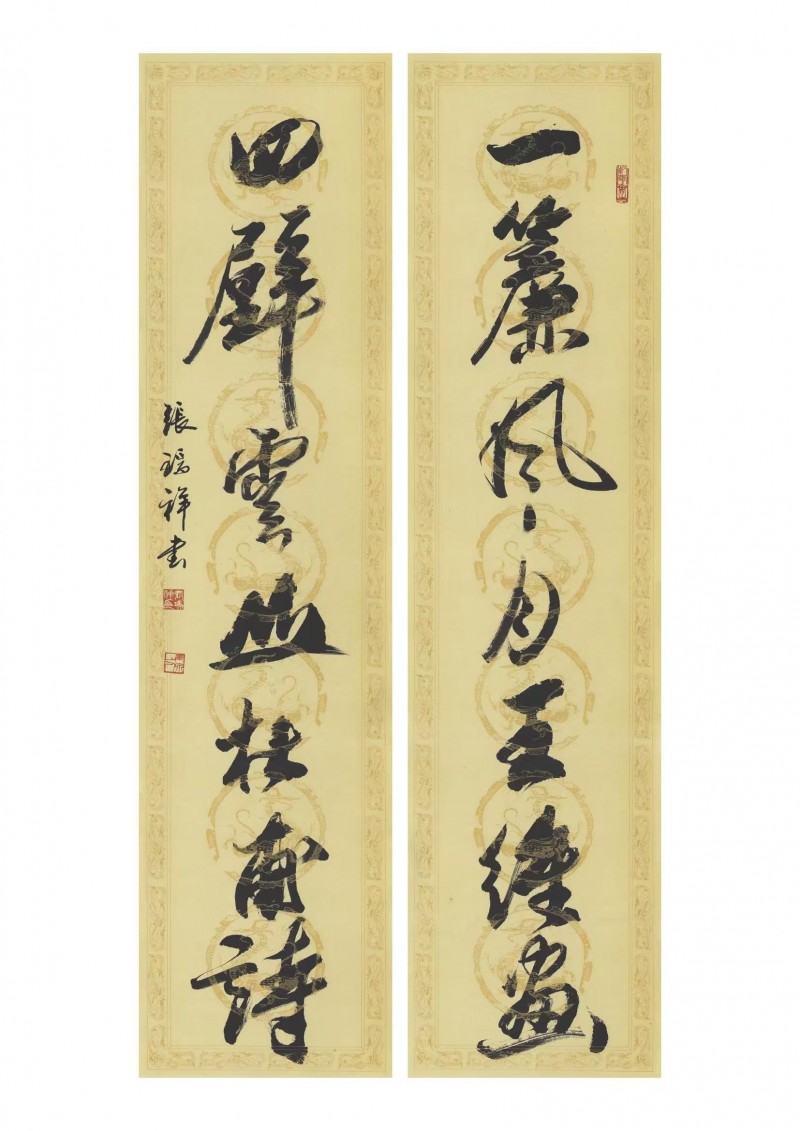 一簾風月王維畫
四壁雲山杜甫詩
張瑞祥書